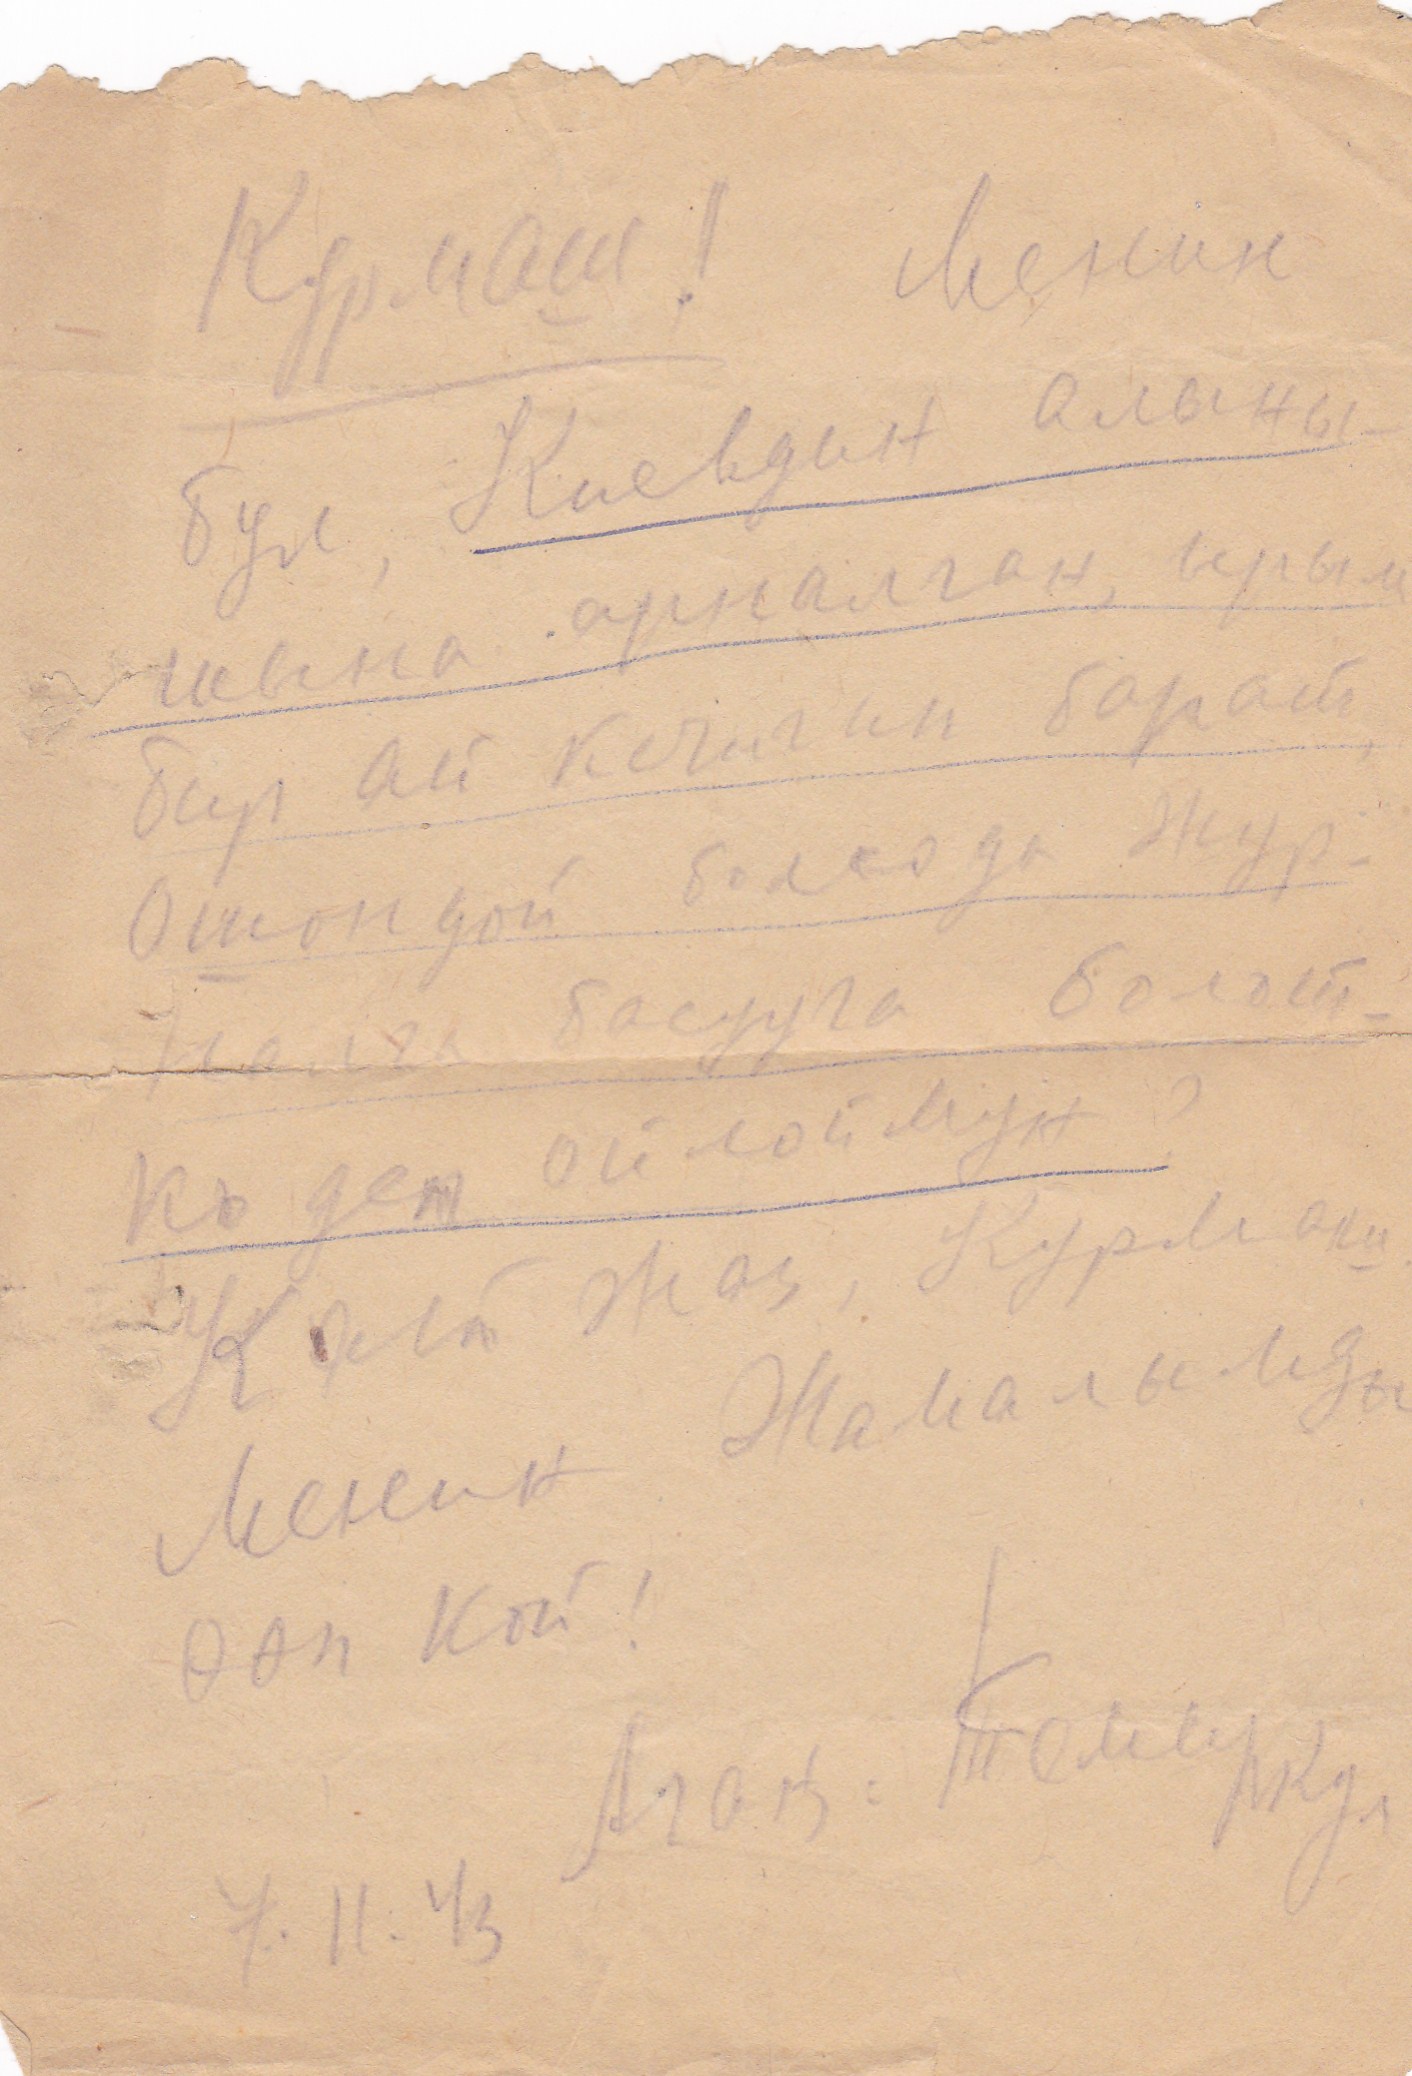 Курмаш! Менин
бул, Киевдин алыны-
шына арналган, ырым
бир ай кечигип барат,
Ошондой болсода жур-
налга басууга болот-
ко деп ойлоймун?
Кат жаз, Курмаш.
Менин Жамалымды
өөп кой!
Агаң: Темиркул
7.11.43